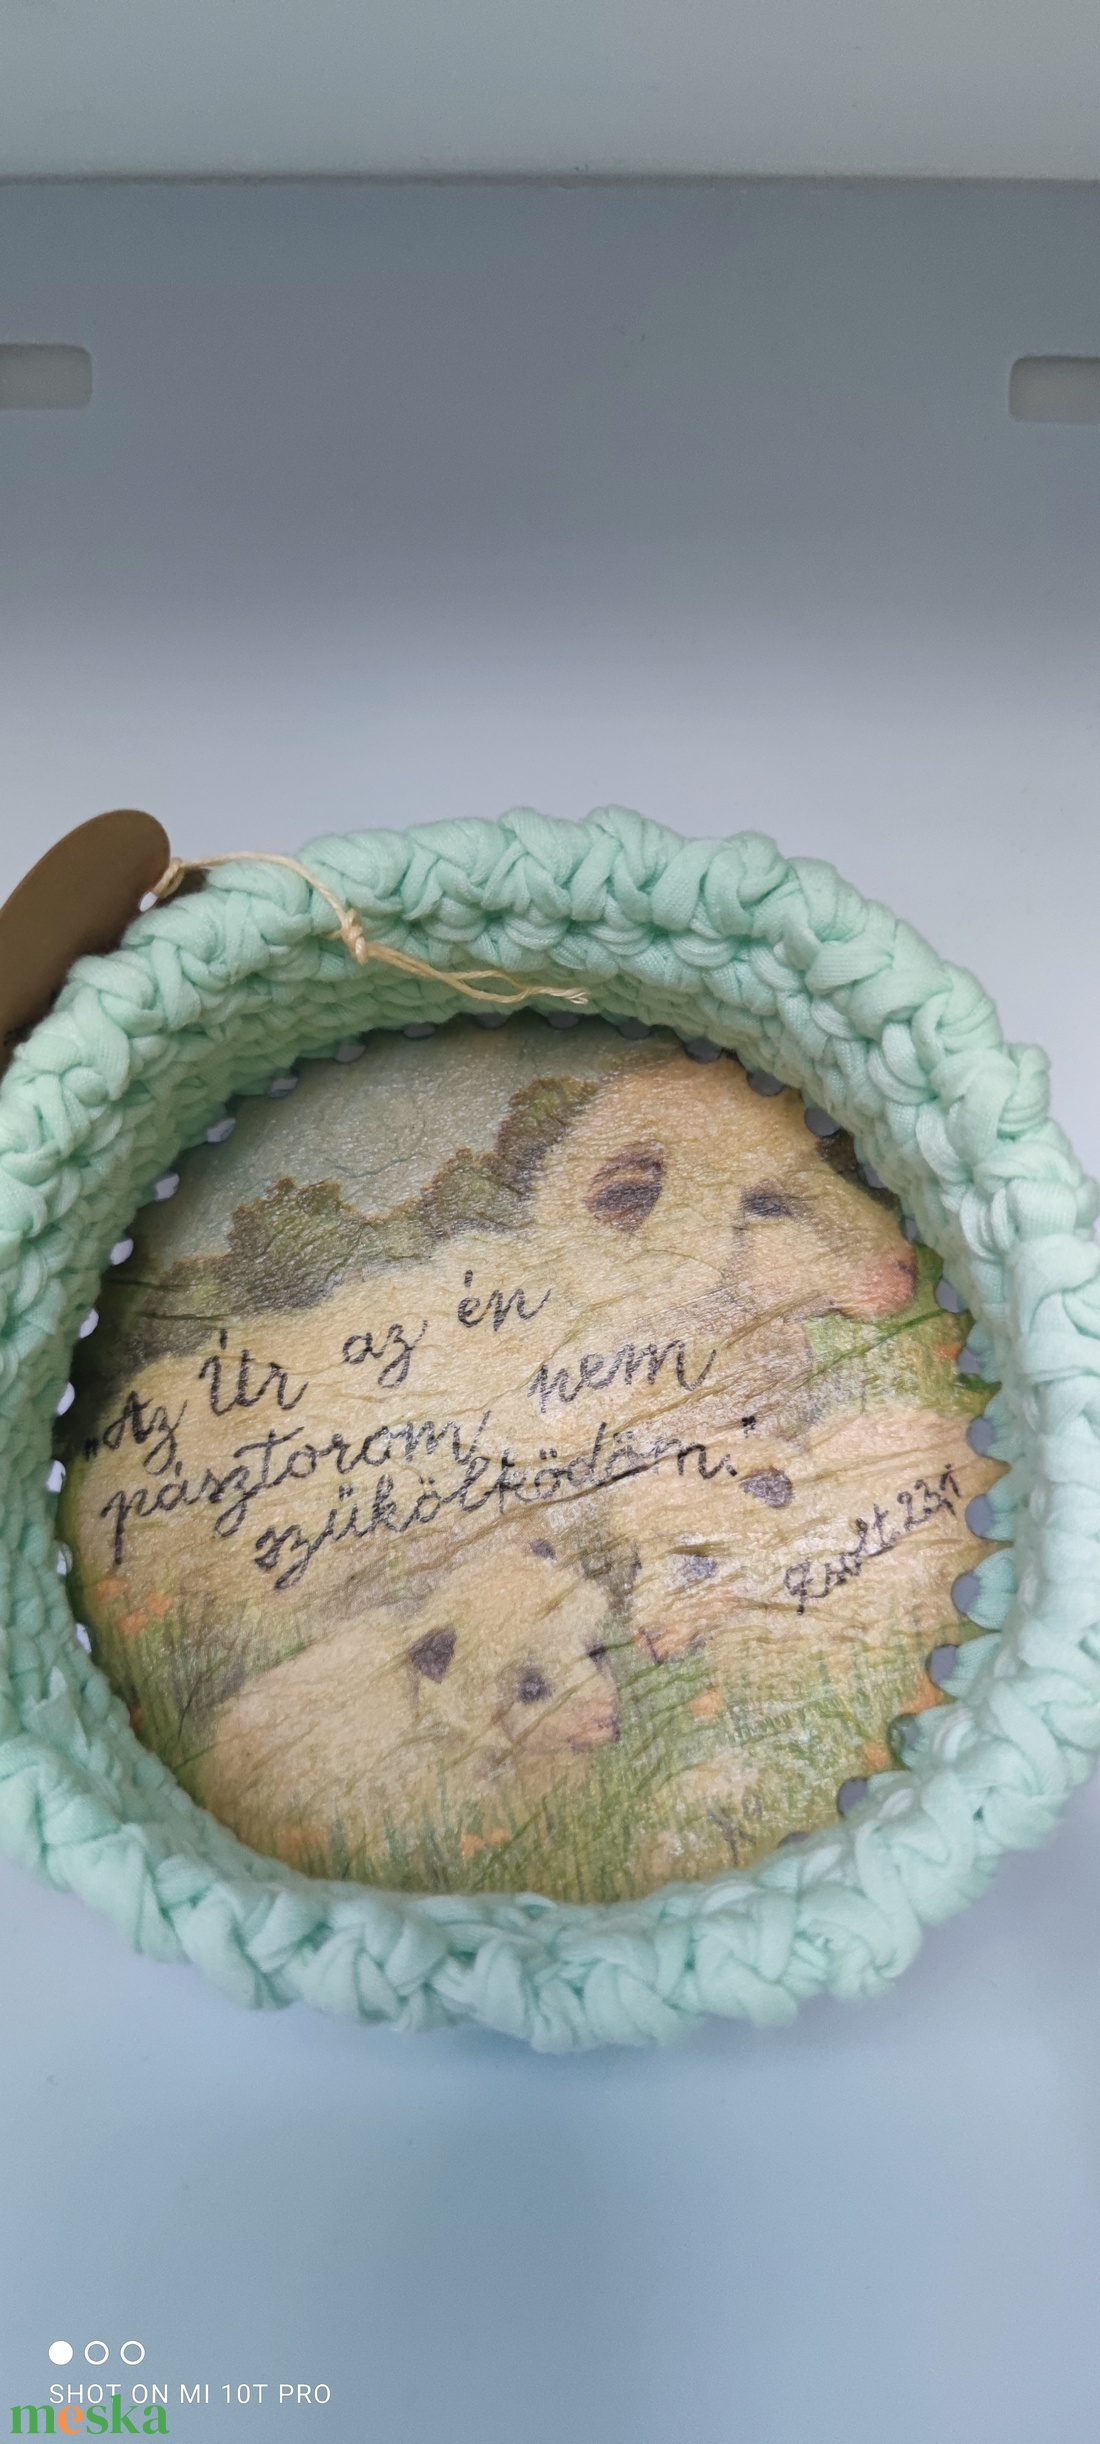 „Az Úr az én
pásztorom, nem
szükölködöm."
Zsolt. 23,1
SHOT ON MI 10T PRO
meska